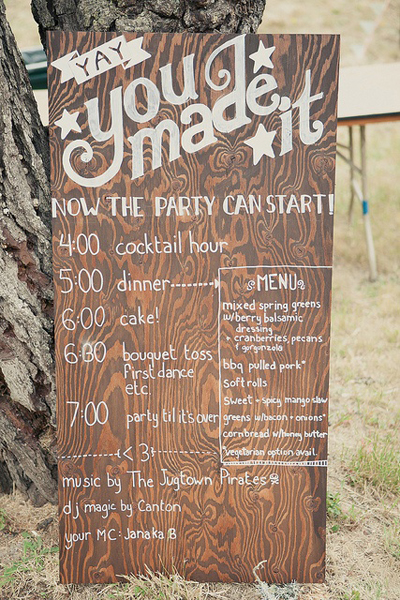 YAY
you
made it
NOW THE PARTY CAN START!
4:00 cocktail hour
5:00 dinner
6:00 cake!
6:30 bouquet toss
first dance
etc.
7:00 party til it's over
< 3
MENU
mixed spring greens
w/berry balsamic
dressing
+ cranberries, pecans
+ gorgonzola
bbq pulled pork*
soft rolls
sweet + spicy mango slaw
greens w/bacon + onions*
cornbread w/honey butter
*vegetarian option avail.
music by The Jugtown Pirates
dj magic by Canton
your MC: Janaka B